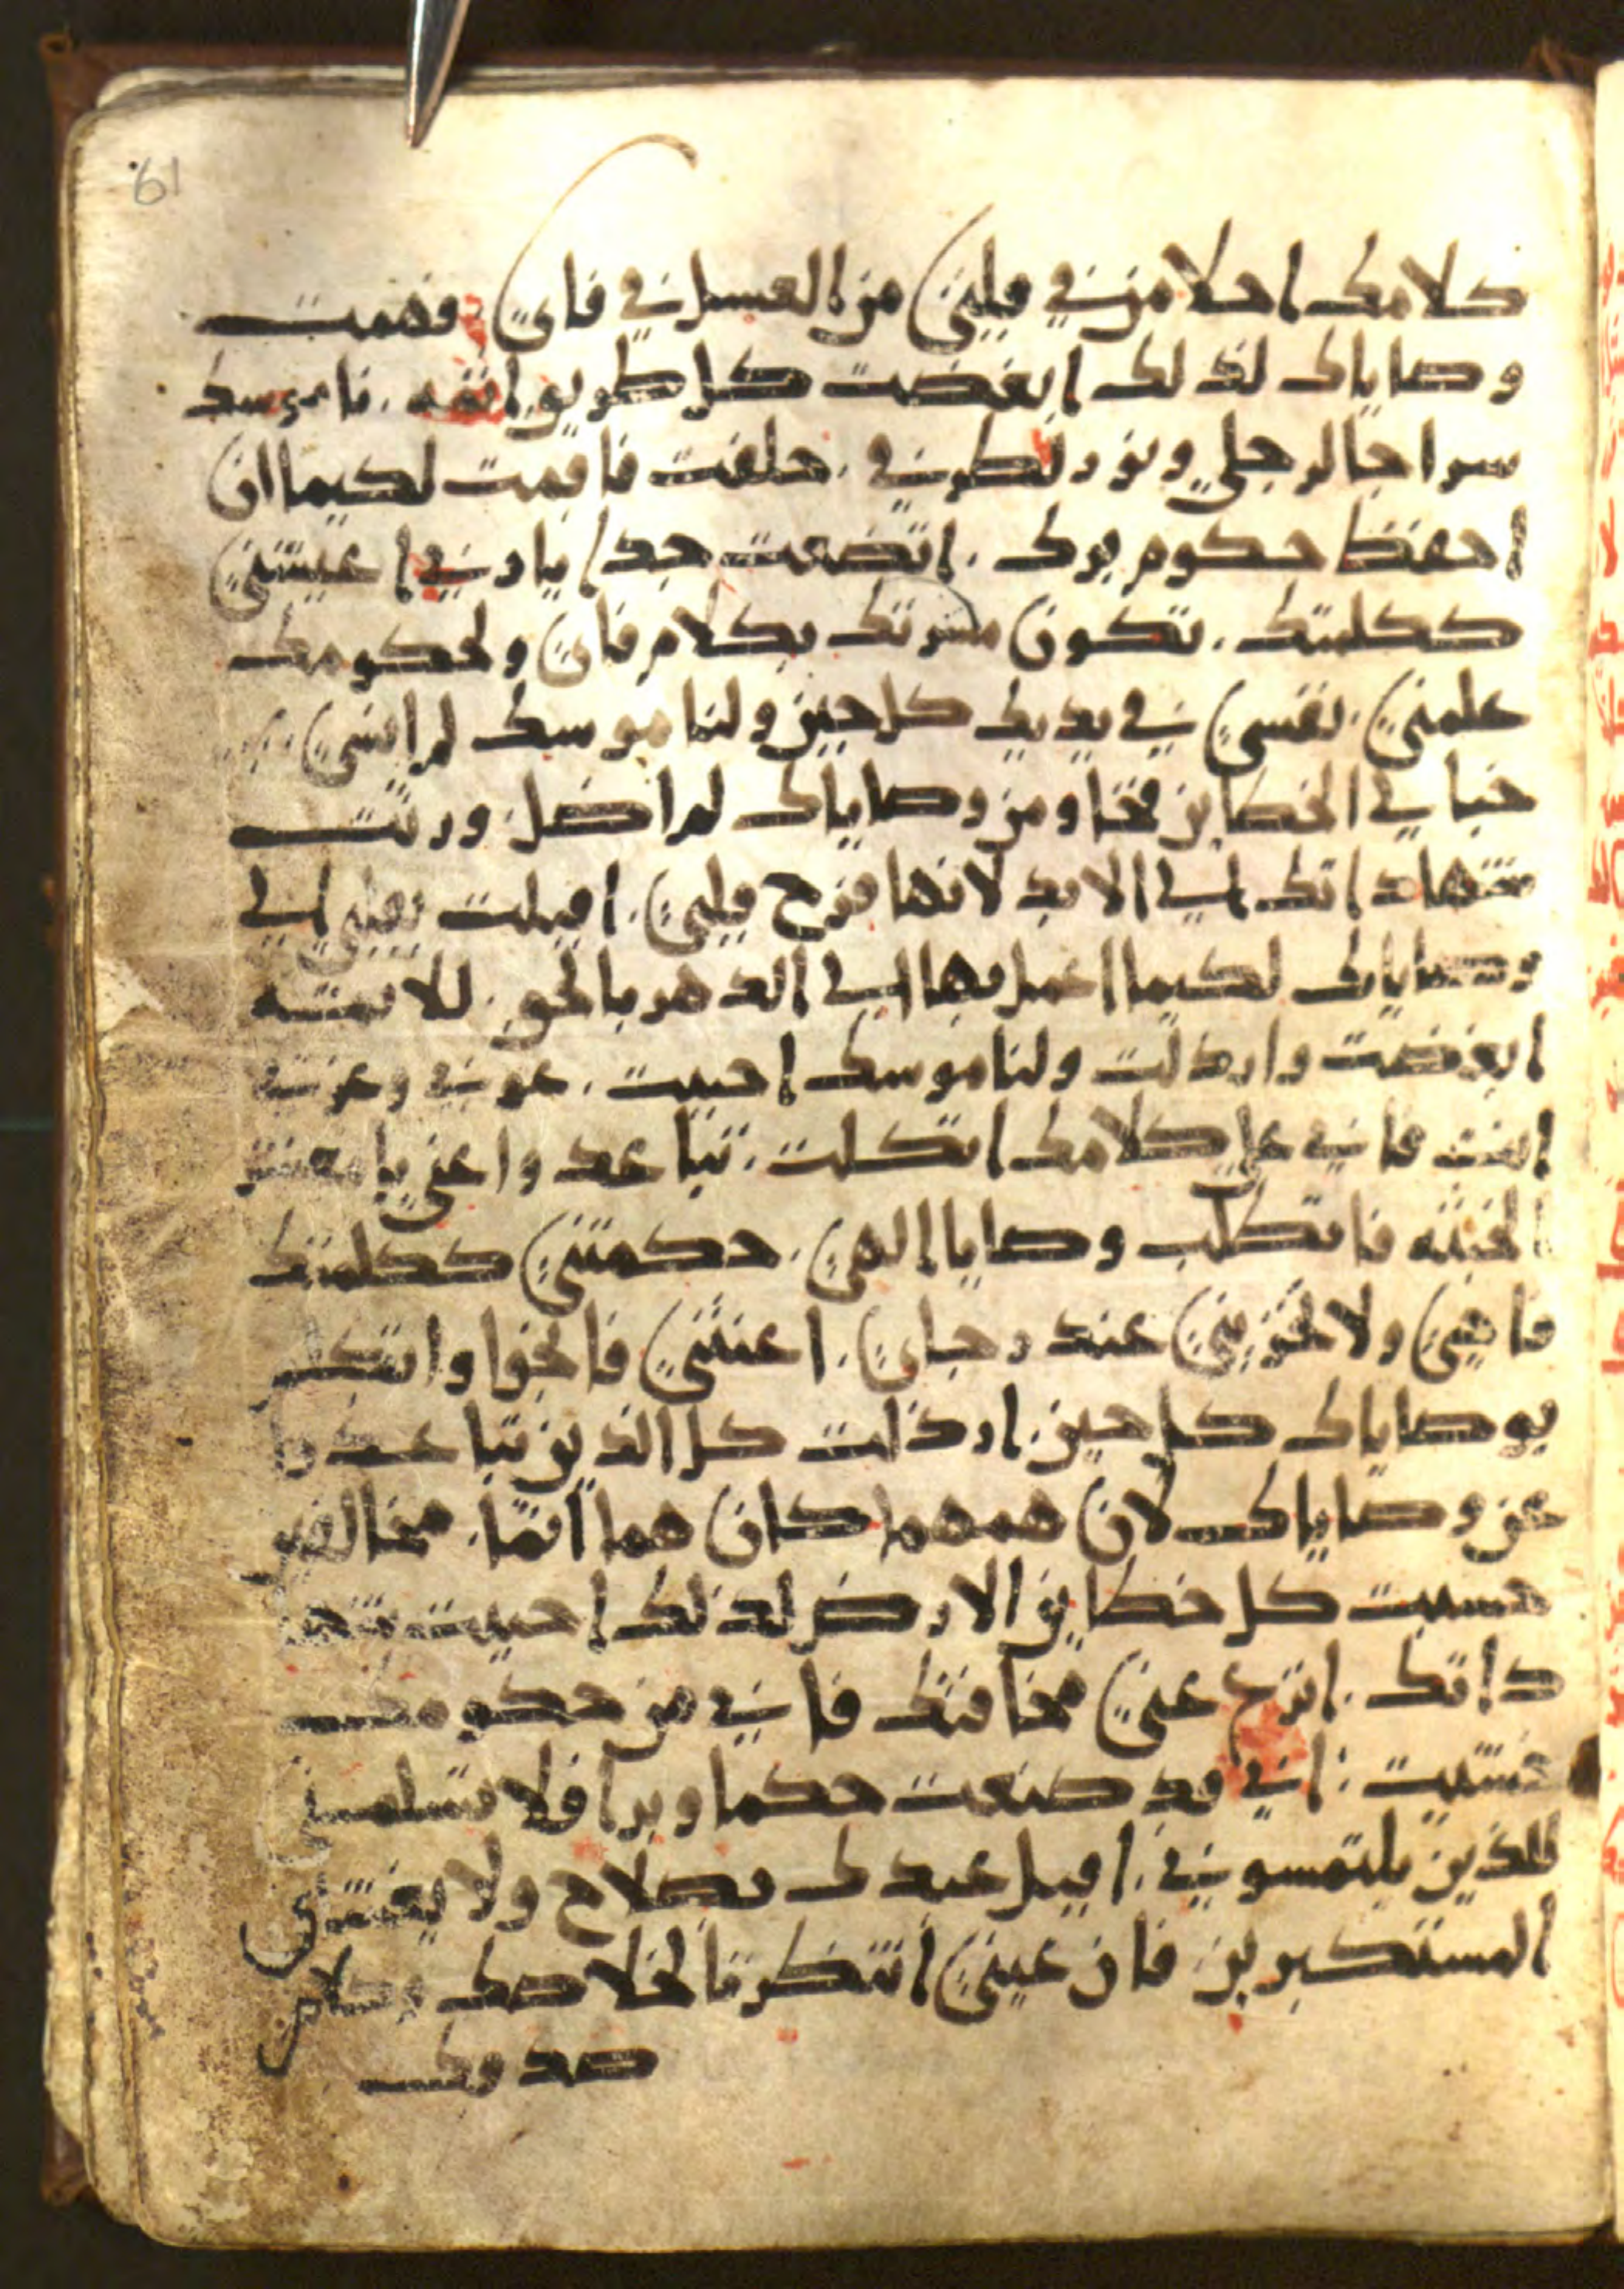 61
كلامك احلا من في قلبي من العسل في فاي. فهمت
وصاياك لذلك ابغضت كل طريق اثمه. ناموسك
سراجا لرجلي ونور لطرقي. حلفت فاقمت لكيما ان
احفظ حكوم برك. اتضعت جدا يا رب اعيشني
ككلمتك. تكون مسرتك بكلام فاي ولحكومك
علمني. نفسي في يديك كل حين ولناموسك لم انسي
خبا لي الخطايين فخا ومن وصاياك لم اضل. ورثت
شهاداتك الي الابد لانها فرح قلبي. اميلت قلبي الي
وصاياك لكيما اعمل بها الي الدهر بالحق. للاثمه
ابغضت وارذلت ولناموسك احببت. عوني وعزتي
انت فاني علي كلامك اتكلت. تباعدوا عني يا معشر
الخبثه فاتطلب وصايا الهي. حكمتني ككلمتك
فاحيي ولا تخزيني عند رجاي. اعنتني فانجوا واتكلم
بوصاياك كل حين. ارذلت كل الذين تباعدوا
عن وصاياك لان هم هم كان هما اثما. مخالفين
حسبت كل خطايين الارض لذلك احببت شها
داتك. انزع عني مخافتك فاني من حكومك
خشيت. اني قد صنعت حكما وبرا فلا تسلمني
للذين يلتمسوني. اقبل عبدك بصلاح ولا يفتري
المستكبرين فان عيني انتظرتا لخلاصك وكلام
صدقك